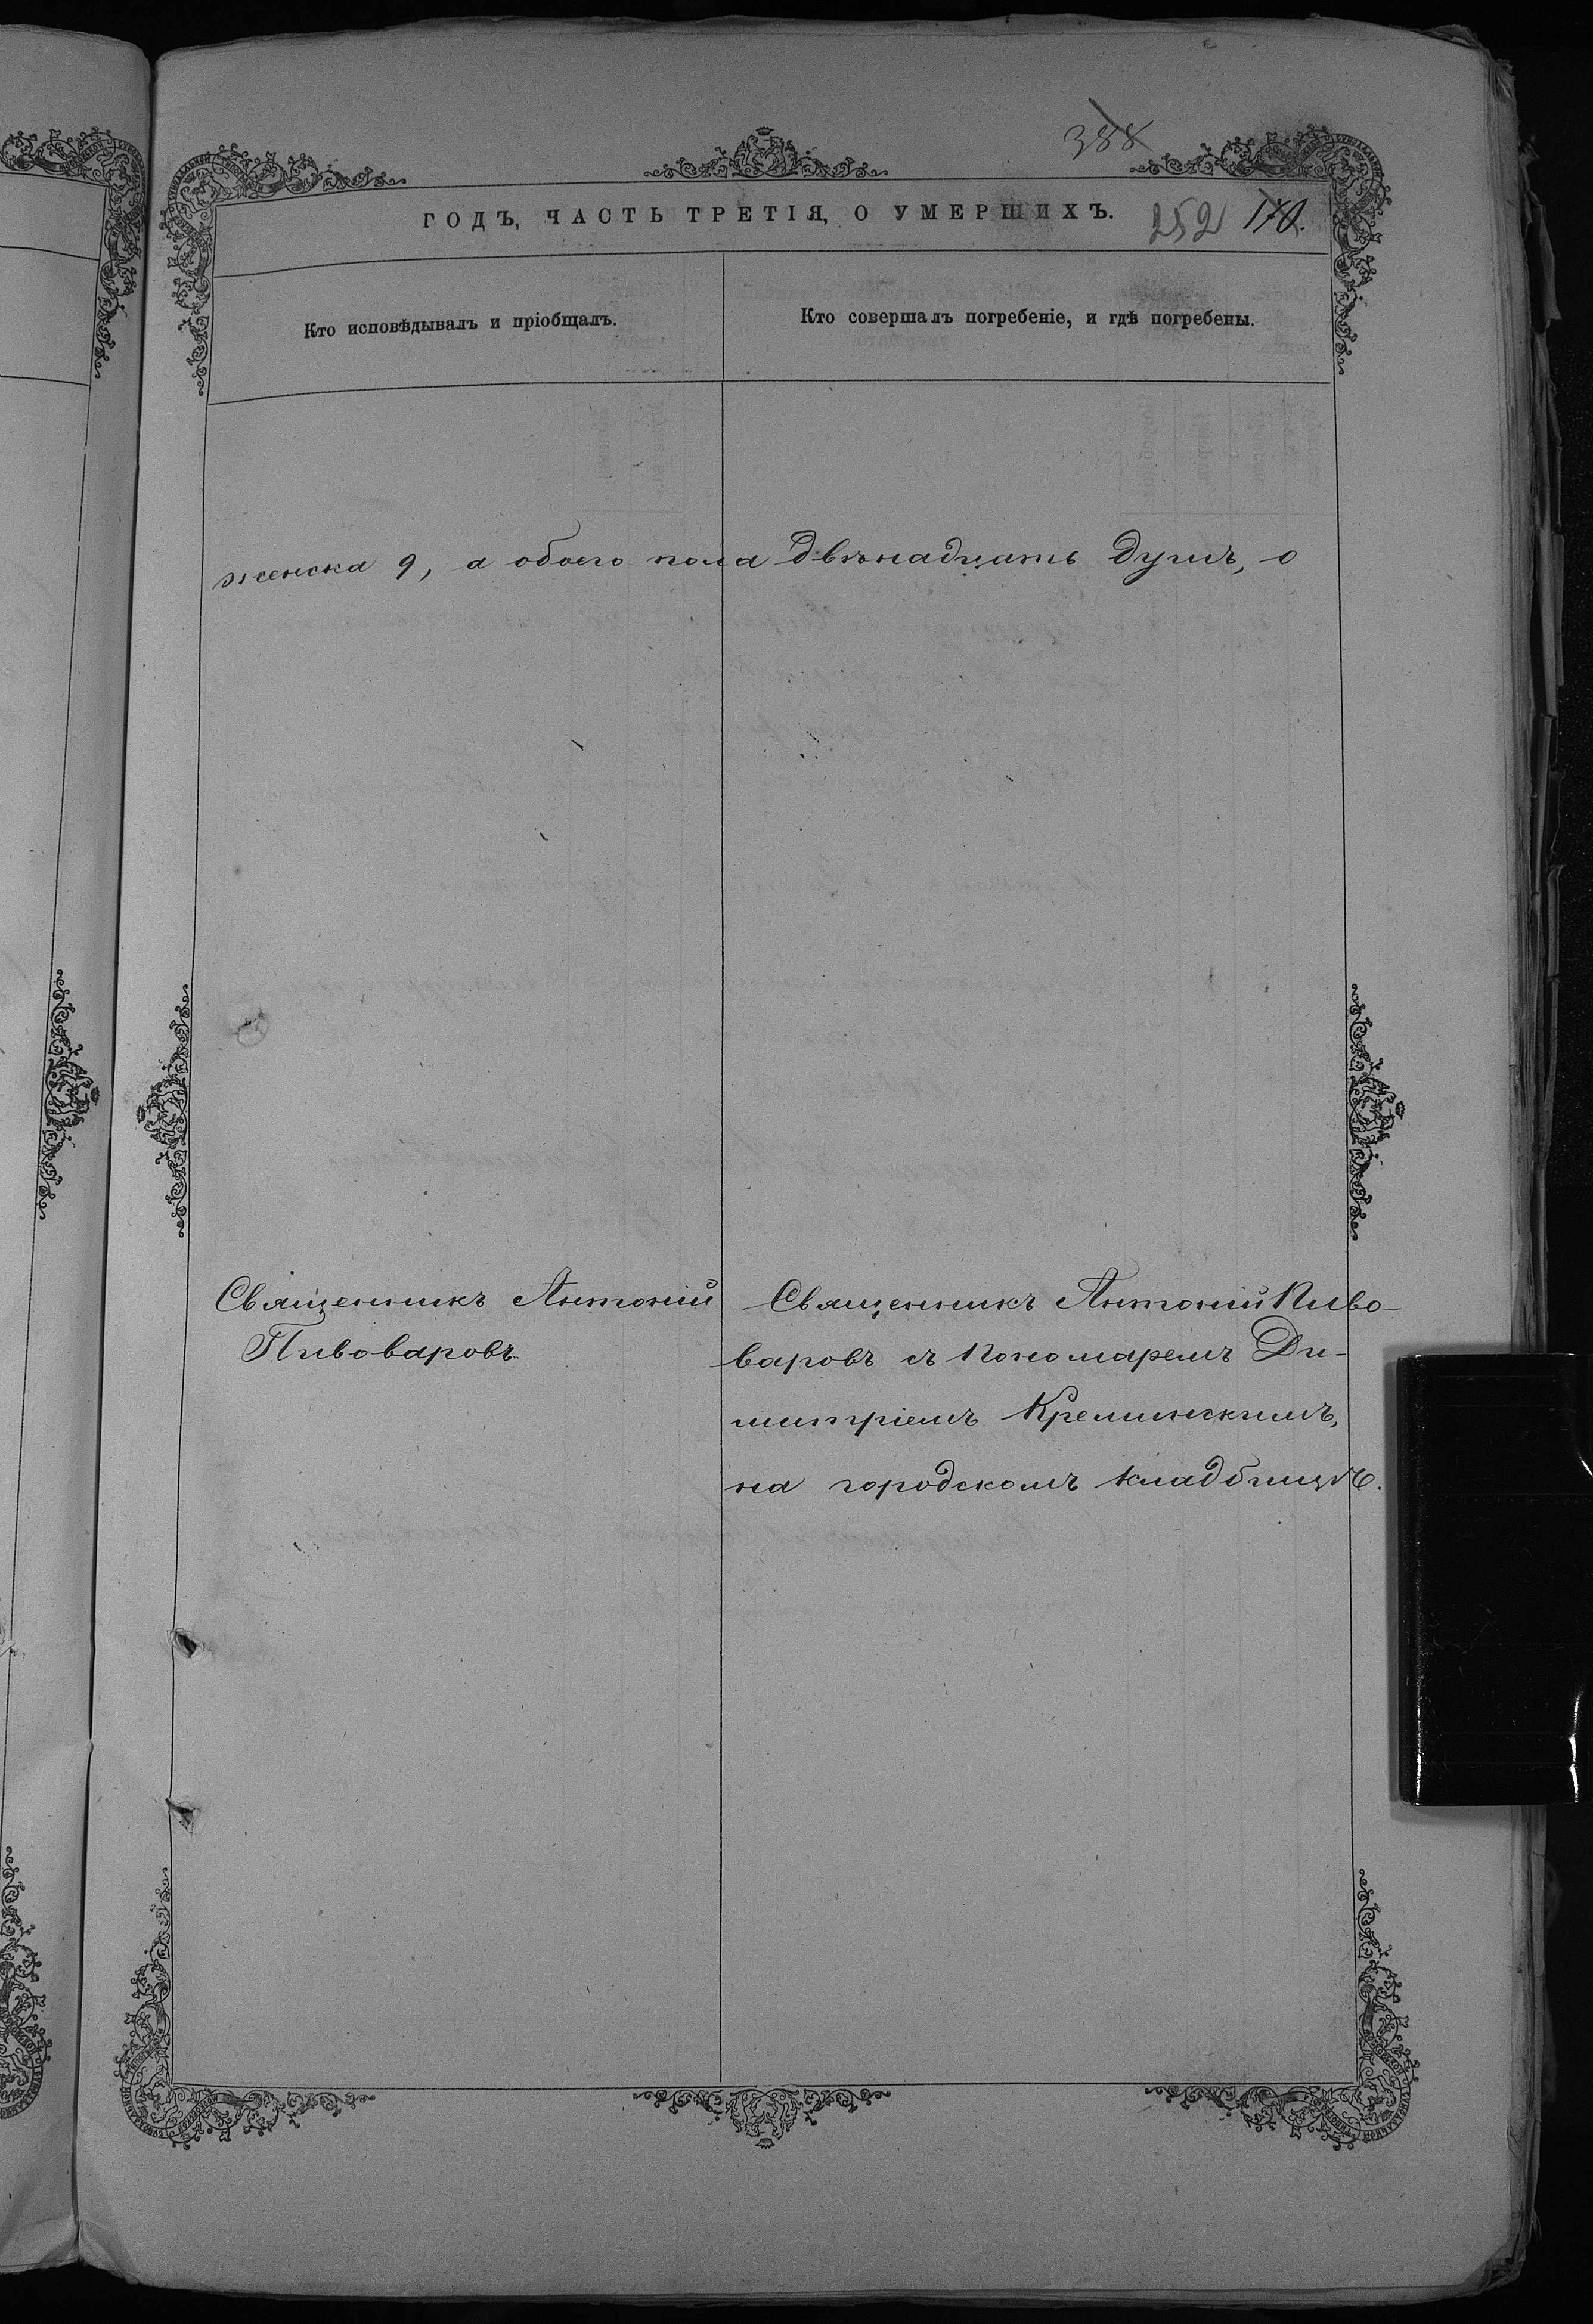 388
ГОДЪ, ЧАСТЬ ТРЕТІЯ, О УМЕРШИХЪ. 252 170.
Кто исповѣдывалъ и пріобщалъ.
Кто совершалъ погребеніе, и гдѣ погребены.
женска 9, а обоего пола двѣнадцать душъ, о
Священникъ Антоній
Пивоваровъ.
Священникъ Антоній Пиво-
варовъ съ пономаремъ Ди-
митріемъ Кременскимъ,
на городскомъ кладбищѣ.